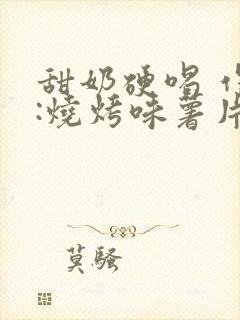 甜奶硬唱
:燒烤味薯片
莫騷